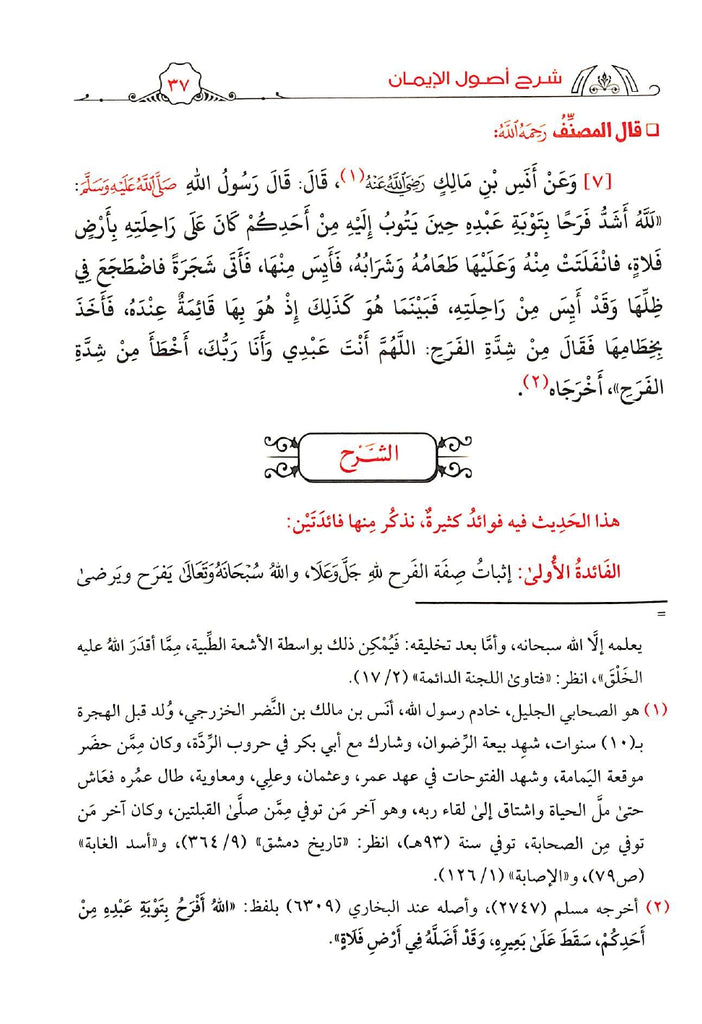 شرح أصول الإيمان
٣٧
قال المصنِّفُ رَحِمَهُ ٱللَّهُ:
[٧] وَعَنْ أَنَسِ بْنِ مَالِكٍ رَضِيَ ٱللَّهُ عَنْهُ(١)، قَالَ: قَالَ رَسُولُ اللهِ صَلَّى ٱللَّهُ عَلَيْهِ وَسَلَّمَ:
«لَلَّهُ أَشَدُّ فَرَحًا بِتَوْبَةِ عَبْدِهِ حِينَ يَتُوبُ إِلَيْهِ مِنْ أَحَدِكُمْ كَانَ عَلَى رَاحِلَتِهِ بِأَرْضِ
فَلَاةٍ، فانْفَلَتَتْ مِنْهُ وَعَلَيْهَا طَعَامُهُ وَشَرَابُهُ، فَأَيِسَ مِنْهَا، فَأَتَى شَجَرَةً فاضْطَجَعَ فِي
ظِلِّهَا وَقَدْ أَيِسَ مِنْ رَاحِلَتِهِ، فَبَيْنَمَا هُوَ كَذَلِكَ إِذْ هُوَ بِهَا قَائِمَةٌ عِنْدَهُ، فَأَخَذَ
بِخِطَامِهَا فَقَالَ مِنْ شِدَّةِ الفَرَحِ: اللَّهُمَّ أَنْتَ عَبْدِي وَأَنَا رَبُّكَ، أَخْطَأَ مِنْ شِدَّةِ
الفَرَحِ»، أَخْرَجَاه(٢).
الشَّرْح
هذا الحَدِيث فيه فوائدُ كثيرةٌ، نذكُر مِنها فائدَتَيْن:
الفَائدةُ الأُولىٰ: إثباتُ صِفَة الفَرح للهِ جَلَّ وَعَلَا، واللهُ سُبْحَانَهُ وَتَعَالَىٰ يَفرَح ويَرضىٰ
=
يعلمه إلَّا الله سبحانه، وأمَّا بعد تخليقه: فَيُمْكِن ذلك بواسطة الأشعة الطِّبية، مِمَّا أقدَرَ اللهُ عليه
الخَلْقَ»، انظر: «فتاوىٰ اللجنة الدائمة» (٢/ ١٧).
(١) هو الصحابي الجليل، خادم رسول الله، أنَس بن مالك بن النَّضر الخزرجي، وُلد قبل الهجرة
بـ(١٠) سنوات، شهِد بيعة الرِّضوان، وشارك مع أبي بكر في حروب الرِّدَّة، وكان مِمَّن حضَر
موقعة اليَمامة، وشهد الفتوحات في عهد عمر، وعثمان، وعلي، ومعاوية، طال عمُره فعَاش
حتىٰ ملَّ الحياة واشتاق إلىٰ لقاء ربه، وهو آخر مَن توفي مِمَّن صلَّىٰ القبلتين، وكان آخر مَن
توفي مِن الصحابة، توفي سنة (٩٣هـ)، انظر: «تاريخ دمشق» (٩/ ٣٦٤)، و«أسد الغابة»
(ص٧٩)، و«الإصابة» (١/ ١٢٦).
(٢) أخرجه مسلم (٢٧٤٧)، وأصله عند البخاري (٦٣٠٩) بلفظ: «اللهُ أَفْرَحُ بِتَوْبَةِ عَبْدِهِ مِنْ
أَحَدِكُمْ، سَقَطَ عَلَىٰ بَعِيرِهِ، وَقَدْ أَضَلَّهُ فِي أَرْضِ فَلَاةٍ».